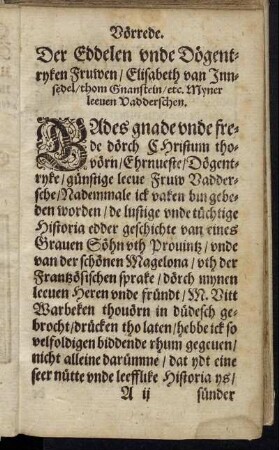 Vörrede.
Der Eddelen vnde Dögent-
ryken Fruwen / Elisabeth van Inn-
sedel / thom Gnanstein / etc. Myner
leeuen Vadderschen.
GAdes gnade vnde fre-
de dörch CHristum tho-
vörn / Ehrnueste / Dögent-
ryke / günstige leeue Fruw Vadder-
sche / Nademmale ick vaken bin gebe-
den worden / de lustige vnde tüchtige
Historia edder geschichte van eines
Grauen Söhn vth Prouintz / vnde
van der schönen Magelona / vth der
Frantzösischen sprake / dörch mynen
leeuen Heren vnde fründt / M. Vitt
Warbeken thouörn in düdesch ge-
brocht / drücken tho laten / hebbe ick so
velfoldigen biddende rhum gegeuen /
nicht alleine darümme / dat ydt eine
seer nütte vnde leefflike Historia ys /
A ij sünder